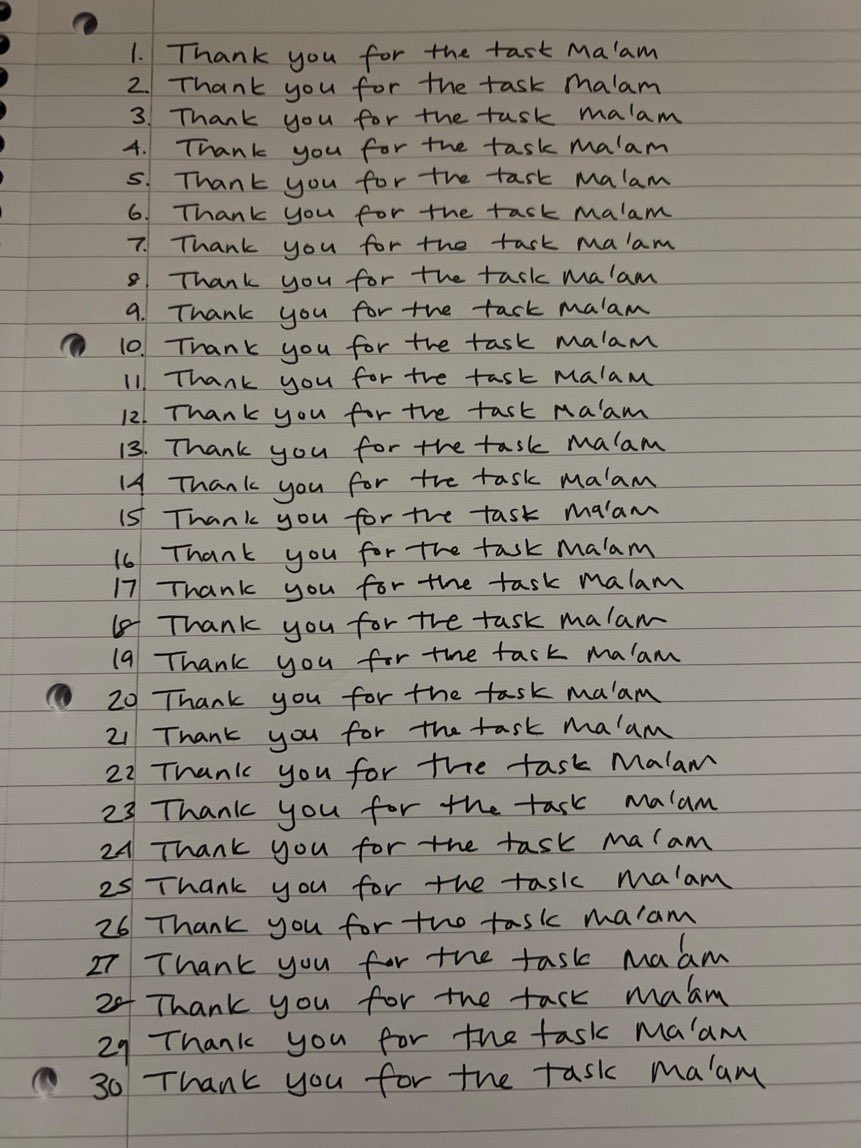 1. Thank you for the task Ma'am
2. Thank you for the task Ma'am
3. Thank you for the task Ma'am
4. Thank you for the task Ma'am
5. Thank you for the task Ma'am
6. Thank you for the task Ma'am
7. Thank you for the task Ma'am
8. Thank you for the task Ma'am
9. Thank you for the task Ma'am
10. Thank you for the task Ma'am
11. Thank you for the task Ma'am
12. Thank you for the task Ma'am
13. Thank you for the task Ma'am
14 Thank you for the task Ma'am
15 Thank you for the task Ma'am
16 Thank you for the task Ma'am
17 Thank you for the task Ma'am
18 Thank you for the task Ma'am
19 Thank you for the task Ma'am
20 Thank you for the task Ma'am
21 Thank you for the task Ma'am
22 Thank you for the task Ma'am
23 Thank you for the task Ma'am
24 Thank you for the task Ma'am
25 Thank you for the task Ma'am
26 Thank you for the task Ma'am
27 Thank you for the task Ma'am
28 Thank you for the task Ma'am
29 Thank you for the task Ma'am
30 Thank you for the task Ma'am